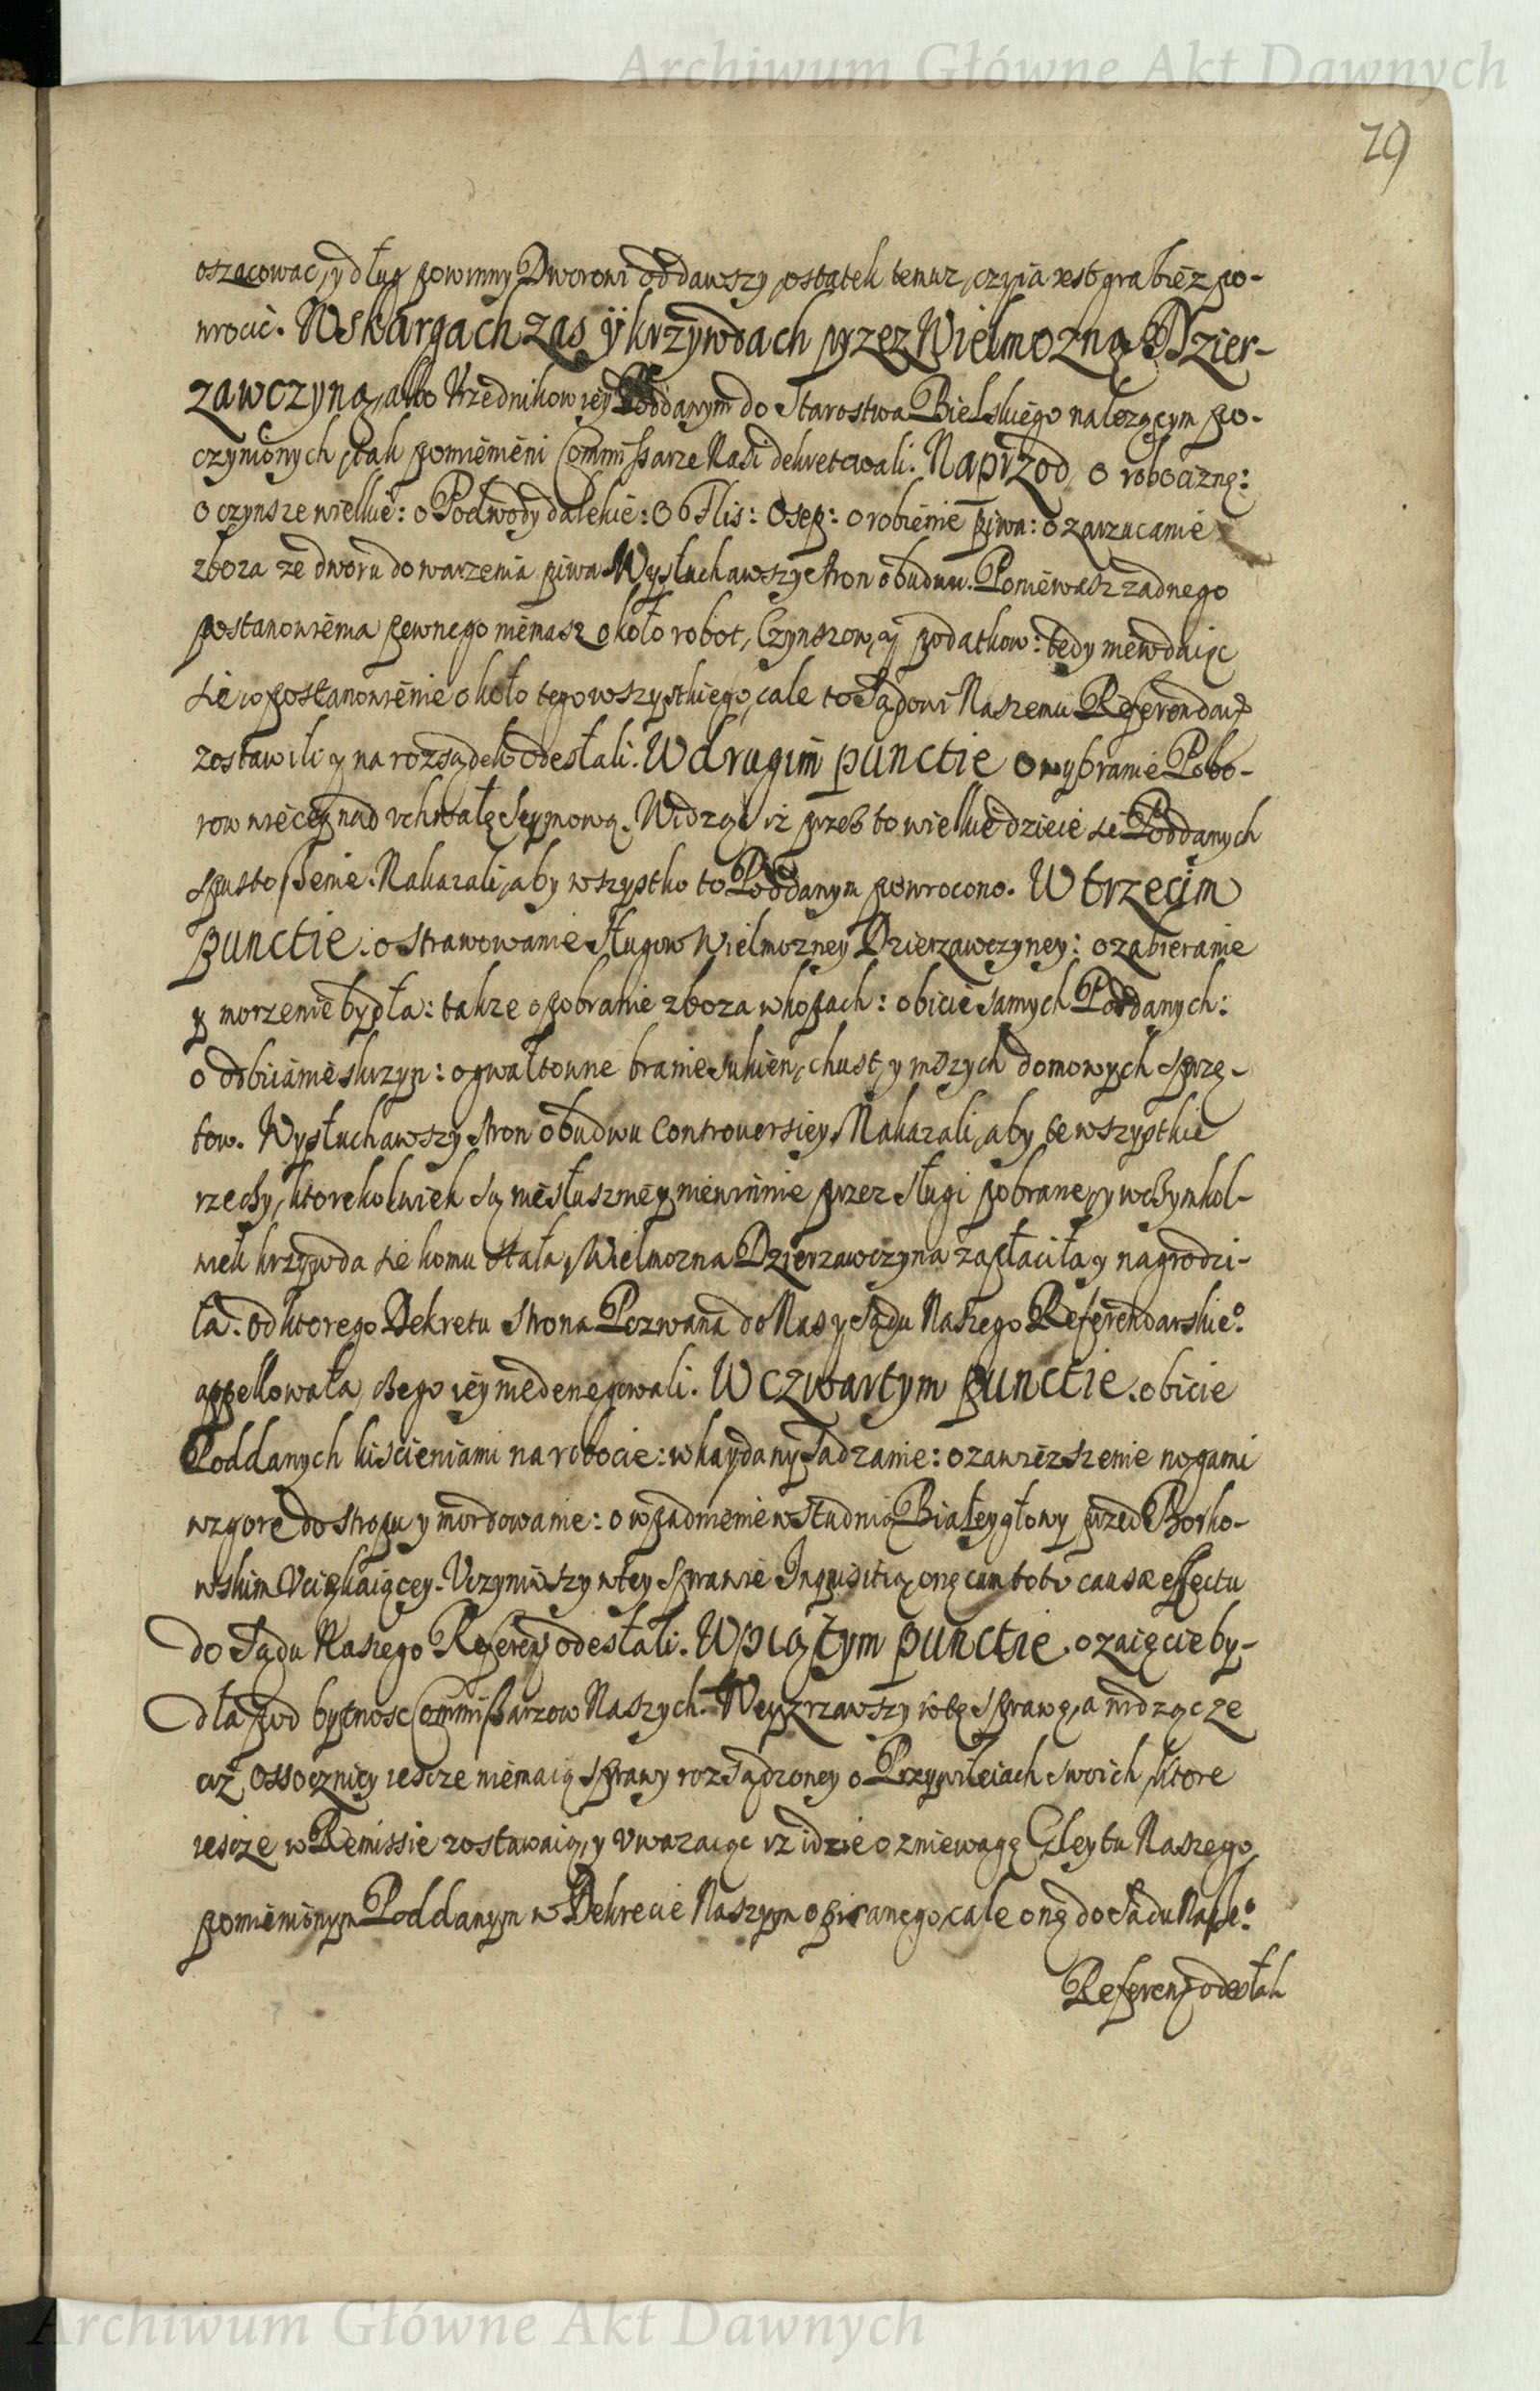 Archiwum Główne Akt Dawnych
29
oszacowac, y dług powinny Dworowi oddawszy, ostatek temuz, czyia iest grabiez po-
wrocic. W skargach zas y krzywdach przez Wielmozną Dzier-
zawczyną, albo Vrzednikow iey Poddanym do Starostwa Bielskiego nalezącym po-
czynionych, tak pomienieni Commissarze Nasi dekretowali. Naprzod o robociznę:
o czynsze wielkie: o Podwody dalekie: o Flis: o sep: o robienie piwa: o zarzucanie
zboza ze dworu do warzenia piwa. Wysłuchawszy stron obudwu. Poniewasz zadnego
postanowienia pewnego niemasz około robot, Czynszow, y podatkow: tedy niewdaiąc
sie w postanowienie około tego wszystkiego, cale to Sądowi Naszemu Referendar
zostawili y na rozsądek odesłali. W drugim punctie o wybranie Pobo-
row więcey nad vchwałę Seymową. Widząc iż przez to wielkie dzieie sie Poddanych
spustoszenie. Nakazali, aby wszystko to Poddanym powrocono. W trzecim
punctie. o strawowanie sługow Wielmozney Dzierzawczyney: o zabieranie
y morzenie bydła: takze o pobranie zboza w kopach: o bicie samych Poddanych:
o odbiianie skrzyn: o gwałtowne branie sukien, chust, y inszych domowych sprzę-
tow. Wysłuchawszy stron obudwu Controuersiey. Nakazali, aby te wszystkie
rzeczy, ktorekolwiek są niesłusznie y niewinnie przez sługi pobrane, y w czymkol-
wiek krzywda sie komu stała, Wielmozna Dzierzawczyna zapłaciła y nagrodzi-
ła. Od ktorego Dekretu strona Pozwana do Nas y Sądu Naszego Referendarskie°
appellowała, czego iey niedenegowali. W czwartym punctie. o bicie
Poddanych kiścieniami na robocie: w kaydany sadzanie: o zawieszenie nogami
wzgorę do stropu y mordowanie: o wpadnienie w studnią Białeygłowy przed Borko-
wskim Vciekaiącey. Vczyniwszy w tey sprawie Inquisitią, onę cum toto causæ effectu
do Sądu Naszego Referen: odesłali. W piątym punctie. o zaięcie by-
dła pod bytnosc Commissarzow Naszych. Weyzrzawszy w tę sprawę, a widząc ze
ciż Ossocznicy iescze niemaią sprawy rozsądzoney o Przywileiach swoich, ktore
iescze w Remissie zostawaią, y vwazaiąc iz idzie o zniewagę Gleytu Naszego,
pomienionym Poddanym w Dekrecie Naszym opisanego, cale onę do Sądu Nasze°
Referen: odesłali
Archiwum Główne Akt Dawnych